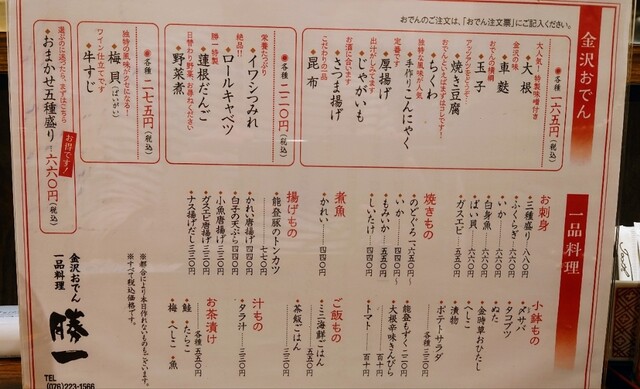 おでんのご注文は、「おでん注文票」にご記入ください。
金沢おでん
各種 一六五円(税込)
大人気!特製味噌付き
大根
金沢の味
車麩
おでんの横綱
玉子
焼き豆腐
おでんといえばまずはコレです!
ちくわ
独特な風味が人気
手作りこんにゃく
定番です
厚揚げ
出汁がしみてます
じゃがいも
お酒に合います
ささみ揚げ
こだわりの一品
昆布
各種 二二〇円(税込)
栄養たっぷり
イワシつみれ
絶品!!
ロールキャベツ
勝一特製
蓮根だんご
日替わり野菜、お尋ねください
野菜煮
各種 二七五円(税込)
独特の風味がクセになる!
梅貝(ばいがい)
ワイン仕立てです
牛すじ
お得です!
選ぶのに迷ったら、まずはこちら
おまかせ五種盛り 六六〇円(税込)
一品料理
お刺身
三種盛り 八八〇
ふくらぎ
いか
白身魚
ばい貝
ガスエビ
焼きもの
のどぐろ 一六五〇〜
いか 四四〇
もみいか 五五〇
しいたけ 四四〇
煮魚
かれい 四四〇
揚げもの
能登豚のトンカツ
七七〇
かれい唐揚 四四〇
白子の天ぷら 四四〇
小魚唐揚 三三〇
ガスエビ唐揚 三三〇
ナス揚げだし 三三〇
小鉢もの
〆サバ
タコブツ
ぬた
金時草おひたし
へしこ
漬物
ポテトサラダ
各種 三三〇
能登もずく 二二〇
大根辛味きんぴら
百十円
トマト 百十円
ご飯もの
三海鮮ごはん
五五〇
茶飯ごはん
汁もの
タラ汁
お茶漬け
各種 五五〇
鮭・たらこ
梅・へしこ・魚
※都合により本日作れないものもございます。
※すべて税込価格です。
金沢おでん
一品料理
勝一
TEL
(076)223-1566